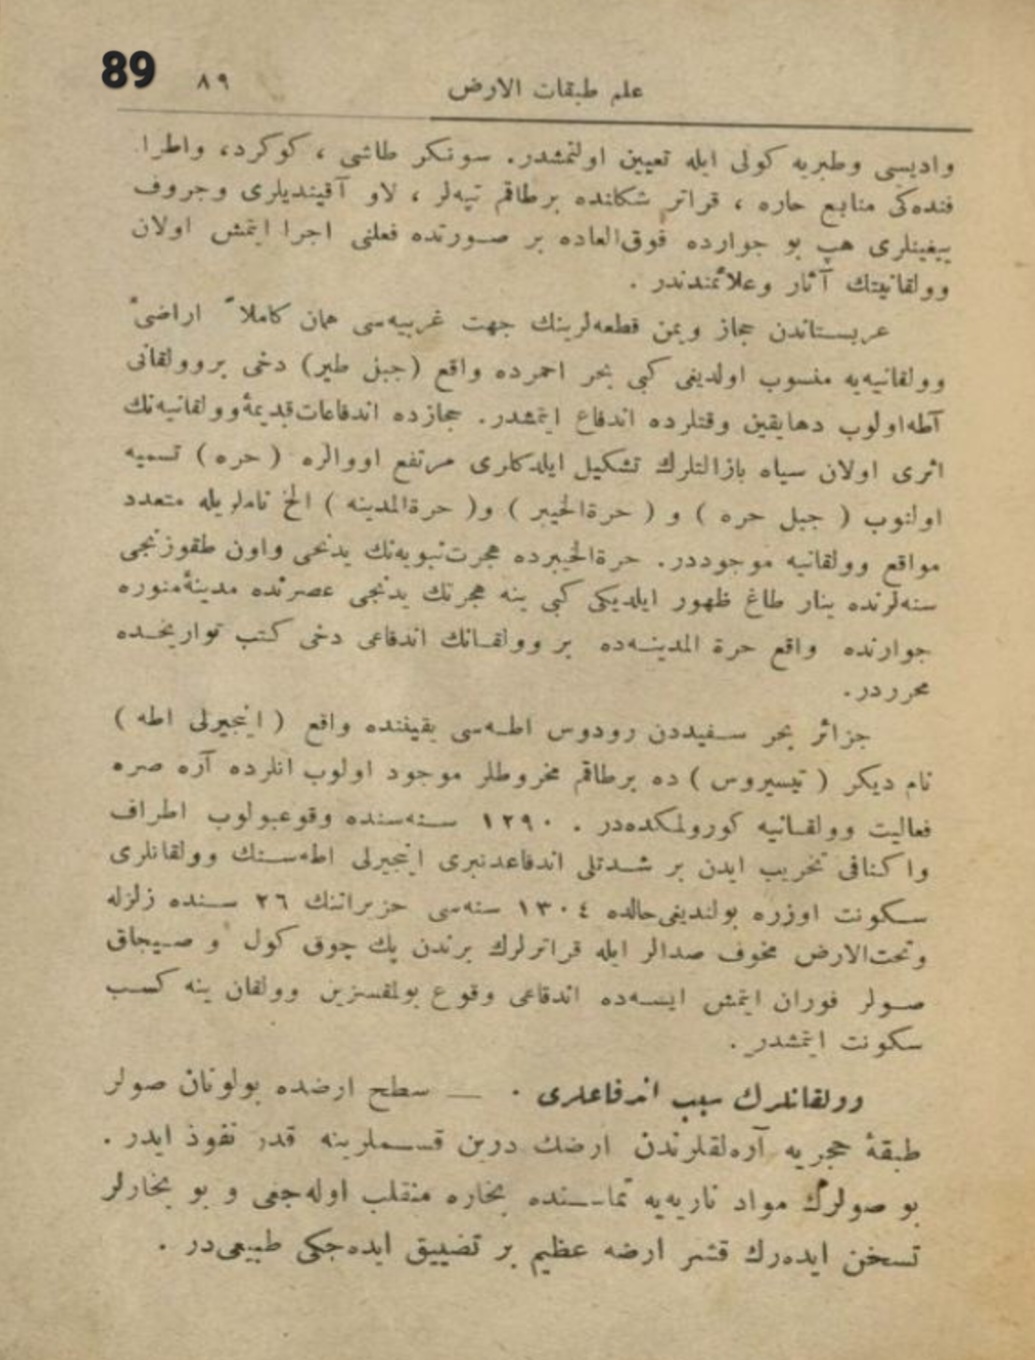 89
علم طبقات الارض ٨٩
واديسى وطبريه كولى ايله تعيين اولنمشدر. سونكر طاشى ، كوكرد، واطرا
فنده‌كى منابع حاره ، قراتر شكلنده برطاقم تپه‌لر ، لاو آقينديلرى وجروف
ييغينلرى هپ بو جوارده فوق‌العاده بر صورتده فعلنى اجرا ايتمش اولان
وولقانيتك آثار وعلائمندندر .
عربستاندن حجاز ويمن قطعه‌لرينك جهت غربيه‌سى همان كاملاً اراضئ
وولقانيه‌يه منسوب اولديغى كبى بحر احمرده واقع (جبل طير) دخى بروولقانى
آطه‌اولوب دهايقين وقتلرده اندفاع ايتمشدر. حجازده اندفاعات‌قديمهٔ‌وولقانيه‌نك
اثرى اولان سياه بازالتلرك تشكيل ايلدكلرى مرتفع اووالره ( حره ) تسميه
اولنوب ( جبل حره ) و ( حرةالخيبر ) و( حرةالمدينه ) الخ ناملريله متعدد
مواقع وولقانيه موجوددر. حرةالخيبرده هجرت‌نبويه‌نك يدنجى واون طقوزنجى
سنه‌لرنده ينار طاغ ظهور ايلديكى كبى ينه هجرتك يدنجى عصرنده مدينهٔ‌منوره
جوارنده واقع حرة المدينه‌ده بر وولقانك اندفاعى دخى كتب تواريخده
محرردر.
جزائر بحر سفيددن رودوس اطه‌سى بقيفنده واقع ( اينجيرلى اطه )
نام ديكر ( تيسيروس ) ده برطاقم مخروطلر موجود اولوب انلرده آره صره
فعاليت وولقانيه كورولمكده‌در . ١٢٩٠ سنه‌سنده وقوعبولوب اطراف
واكنافى تخريب ايدن بر شدتلى اندفاعدنبرى اينجيرلى اطه‌سنك وولقانلرى
سكونت اوزره بولنديغى‌حالده ١٣٠٤ سنه‌سى حزيراننك ٢٦ سنده زلزله
وتحت‌الارض مخوف صدالر ايله قراترلرك برندن پك چوق كول و صيجاق
صولر فوران ايتمش ايسه‌ده اندفاعى وقوع بولمقسزين وولقان ينه كسب
سكونت ايتمشدر .
وولقانلرك سبب اندفاعلرى . — سطح ارضده بولونان صولر
طبقهٔ حجريه آره‌لقلرندن ارضك درين قسملرينه قدر نفوذ ايدر .
بو صولرك مواد ناريه‌يه تماسنده بخاره منقلب اوله‌جغى و بو بخارلر
تسخن ايده‌رك قشر ارضه عظيم بر تضييق ايده‌جكى طبيعى‌در .